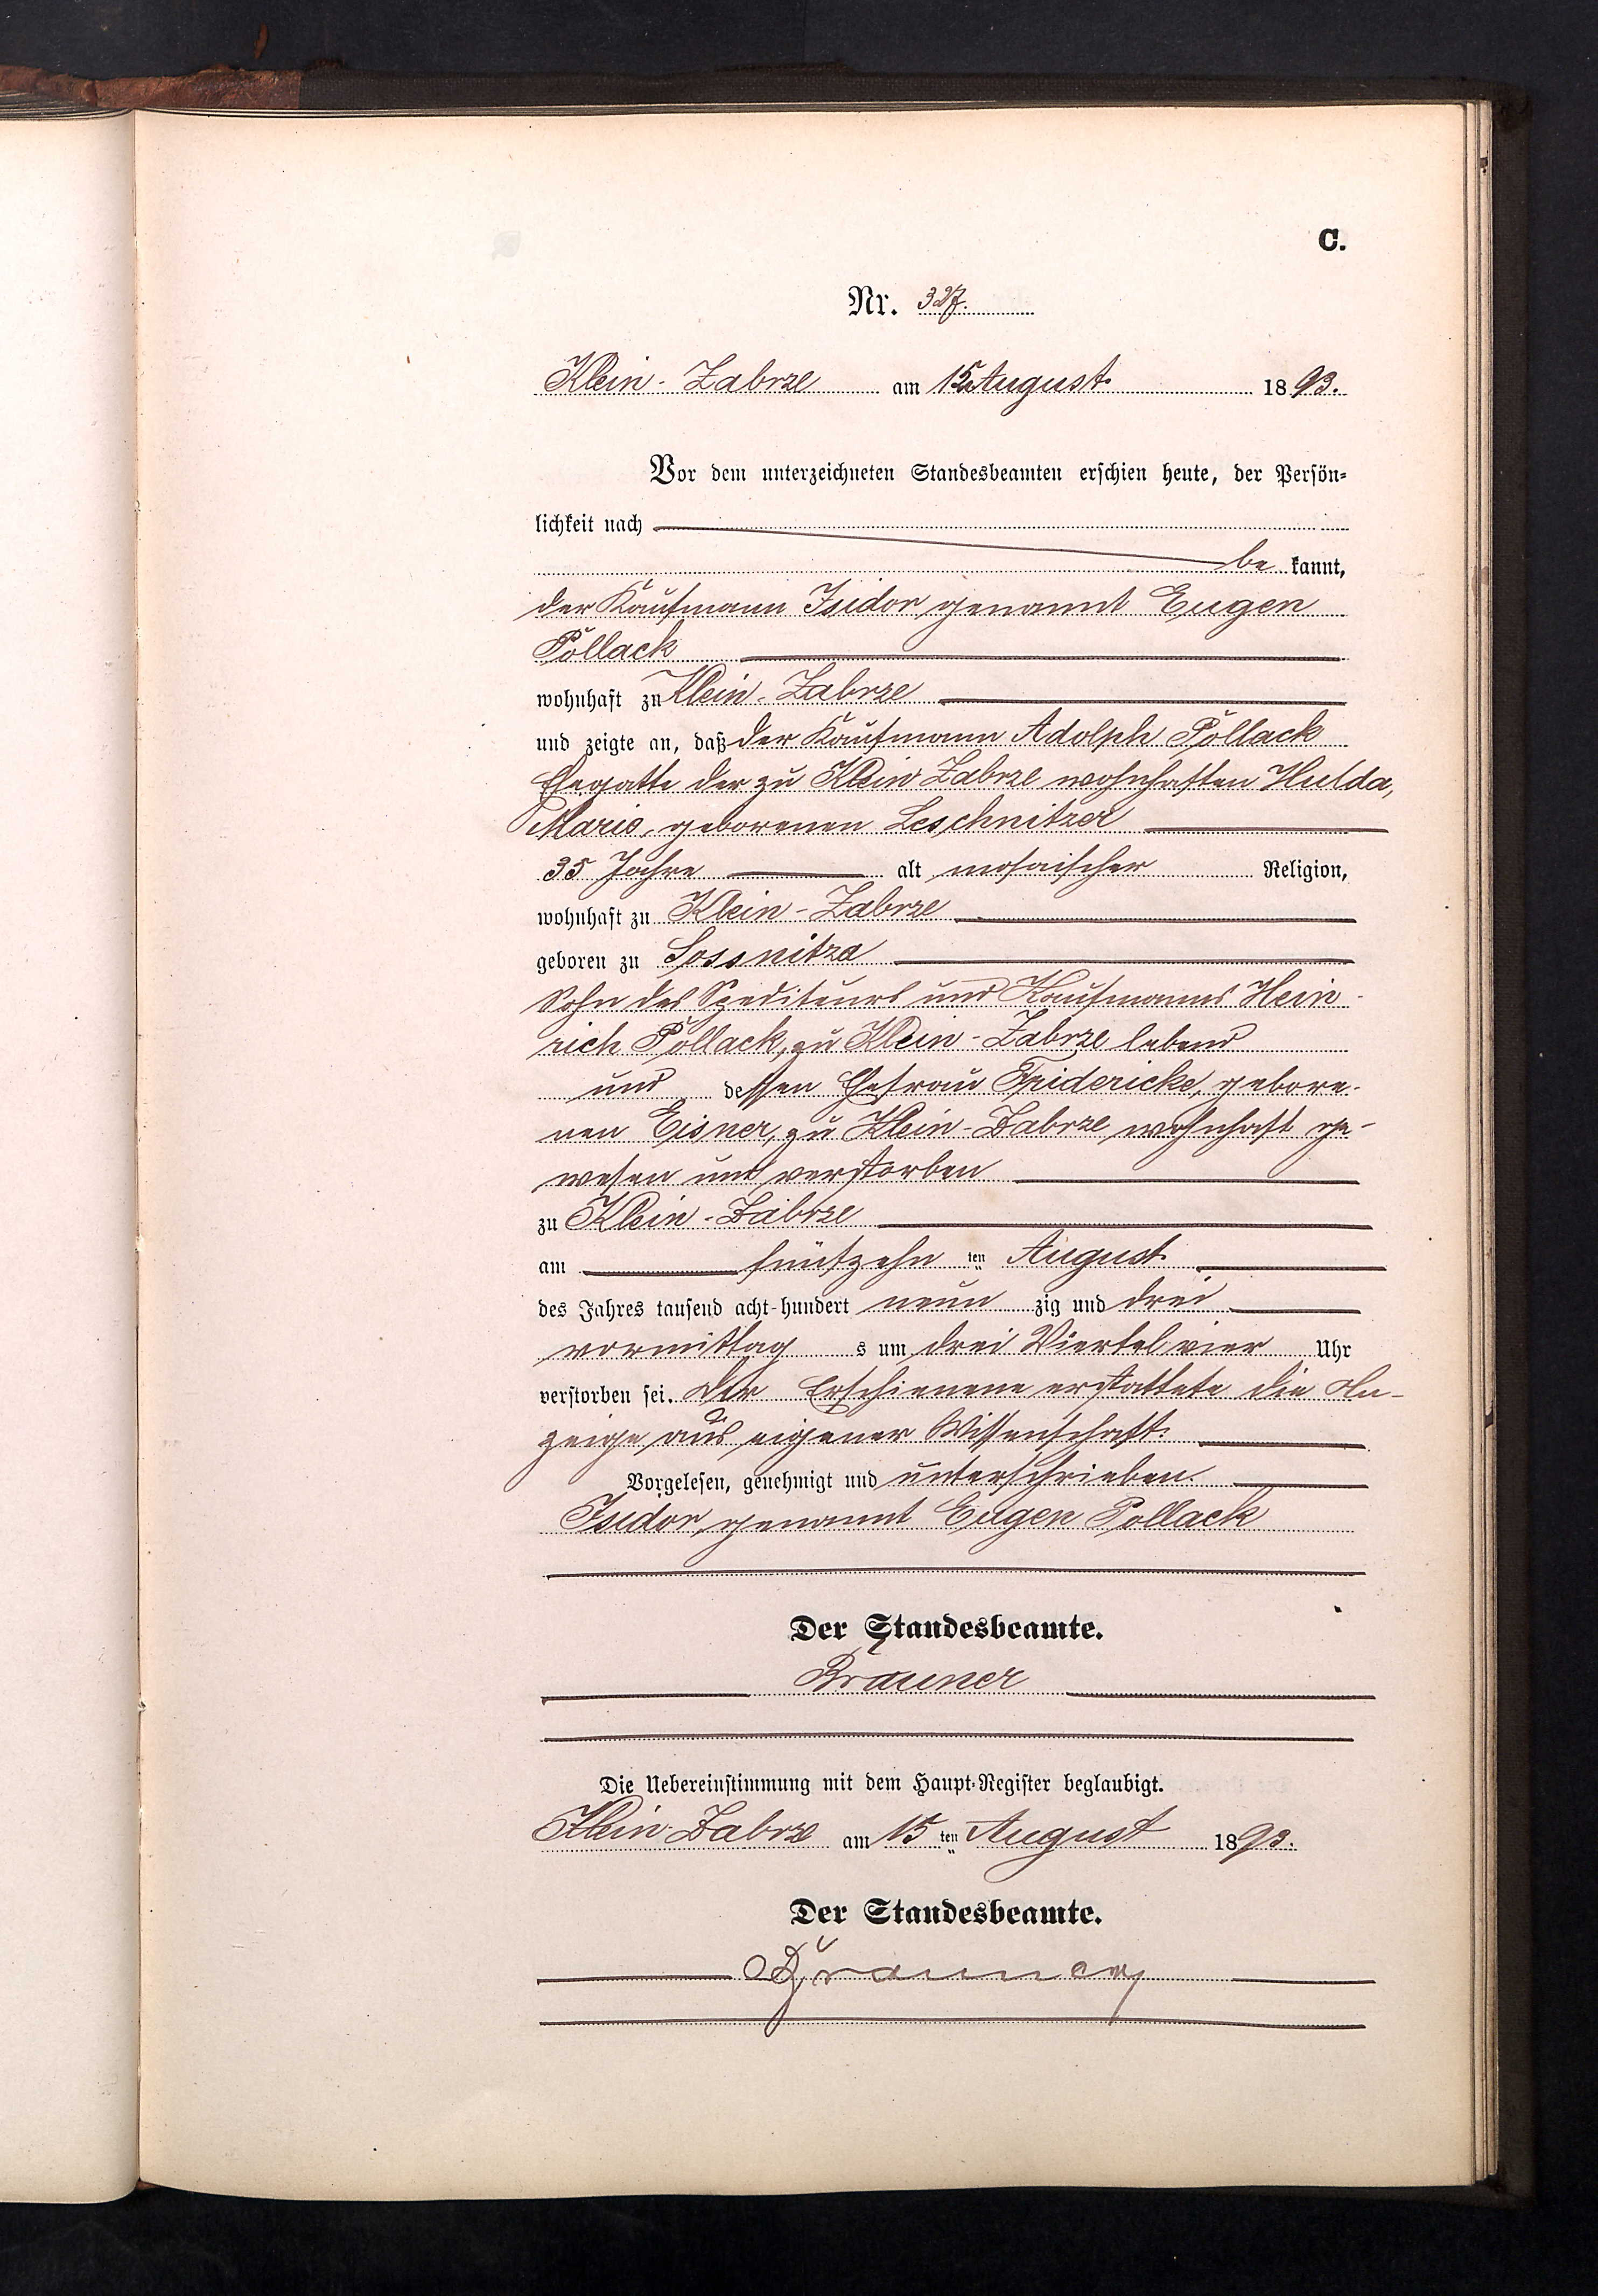 C.
Nr. 327.
Klein-Zabrze am 15. August 1893.
Vor dem unterzeichneten Standesbeamten erschien heute, der Persön-
lichkeit nach
be kannt,
der Kaufmann Isidor genannt Eugen
Pollack
wohnhaft zu Klein-Zabrze
und zeigte an, daß der Kaufmann Adolph Pollack
Ehegatte der zu Klein Zabrze wohnhaften Hulda,
Marie, geborenen Leschnitzer
35 Jahre alt mosaischer Religion,
wohnhaft zu Klein-Zabrze
geboren zu Sossnitza
Sohn des Spediteurs und Kaufmanns Hein-
rich Pollack, zu Klein-Zabrze lebend
und dessen Ehefrau Fridericke, gebore-
nen Eisner, zu Klein-Zabrze wohnhaft ge-
wesen und verstorben
zu Klein-Zabrze
am fünfzehn ten August
des Jahres tausend acht-hundert neun zig und drei
vormittag s um drei Viertel vier Uhr
verstorben sei. Der Erschienene erstattete die An-
zeige aus eigener Wissenschaft.
Vorgelesen, genehmigt und unterschrieben.
Isidor, genannt Eugen Pollack
Der Standesbeamte.
Brauner
Die Uebereinstimmung mit dem Haupt-Register beglaubigt.
Klein Zabrze am 15 ten August 1893.
Der Standesbeamte.
Brauner